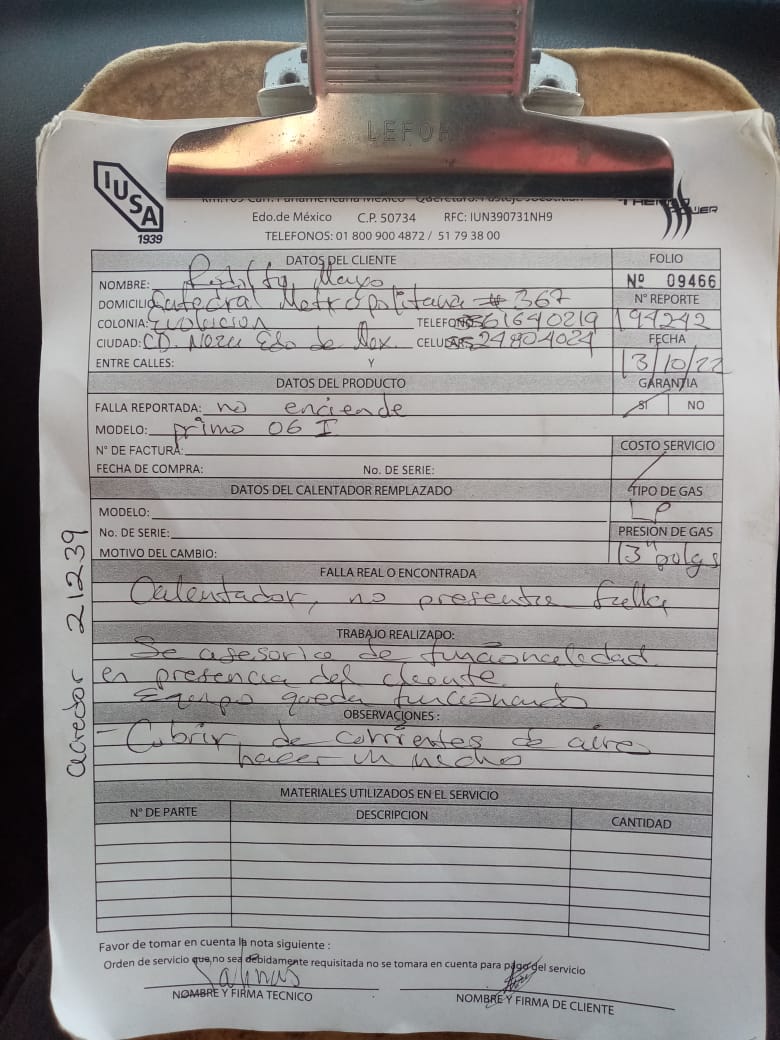 LEFOR
IUSA
1939
THERMO
POWER
Km.109 Carr. Panamericana México - Querétaro. Pastejé Jocotitlán
Edo.de México C.P. 50734 RFC: IUN390731NH9
TELEFONOS: 01 800 900 4872 / 51 79 38 00
DATOS DEL CLIENTE FOLIO
NOMBRE: Rodolfo Mayo Nº 09466
DOMICILIO: Catedral Metropolitana # 367 N° REPORTE
COLONIA: Evolucion TELEFONO: 5561640219 194242
CIUDAD: CD. Neza Edo de Mex. CELULAR: 5524804024 FECHA
ENTRE CALLES: Y 13/10/22
DATOS DEL PRODUCTO GARANTIA
FALLA REPORTADA: no enciende SI NO
MODELO: primo 06 I
N° DE FACTURA: COSTO SERVICIO
FECHA DE COMPRA: No. DE SERIE:
DATOS DEL CALENTADOR REMPLAZADO TIPO DE GAS
MODELO: LP
No. DE SERIE: PRESIÓN DE GAS
MOTIVO DEL CAMBIO: 13" pulgs
FALLA REAL O ENCONTRADA
Calentador, no presenta falla
TRABAJO REALIZADO:
Se asesorio de funcionaledad
en presencia del cleente
Equipo queda funcionando
OBSERVACIONES :
- Cubrir de corrientes de aire
hacer un nicho
MATERIALES UTILIZADOS EN EL SERVICIO
N° DE PARTE DESCRIPCION CANTIDAD
Favor de tomar en cuenta la nota siguiente :
Orden de servicio que no sea debidamente requisitada no se tomara en cuenta para pago del servicio
Salinas
NOMBRE Y FIRMA TECNICO NOMBRE Y FIRMA DE CLIENTE
acredor 21239